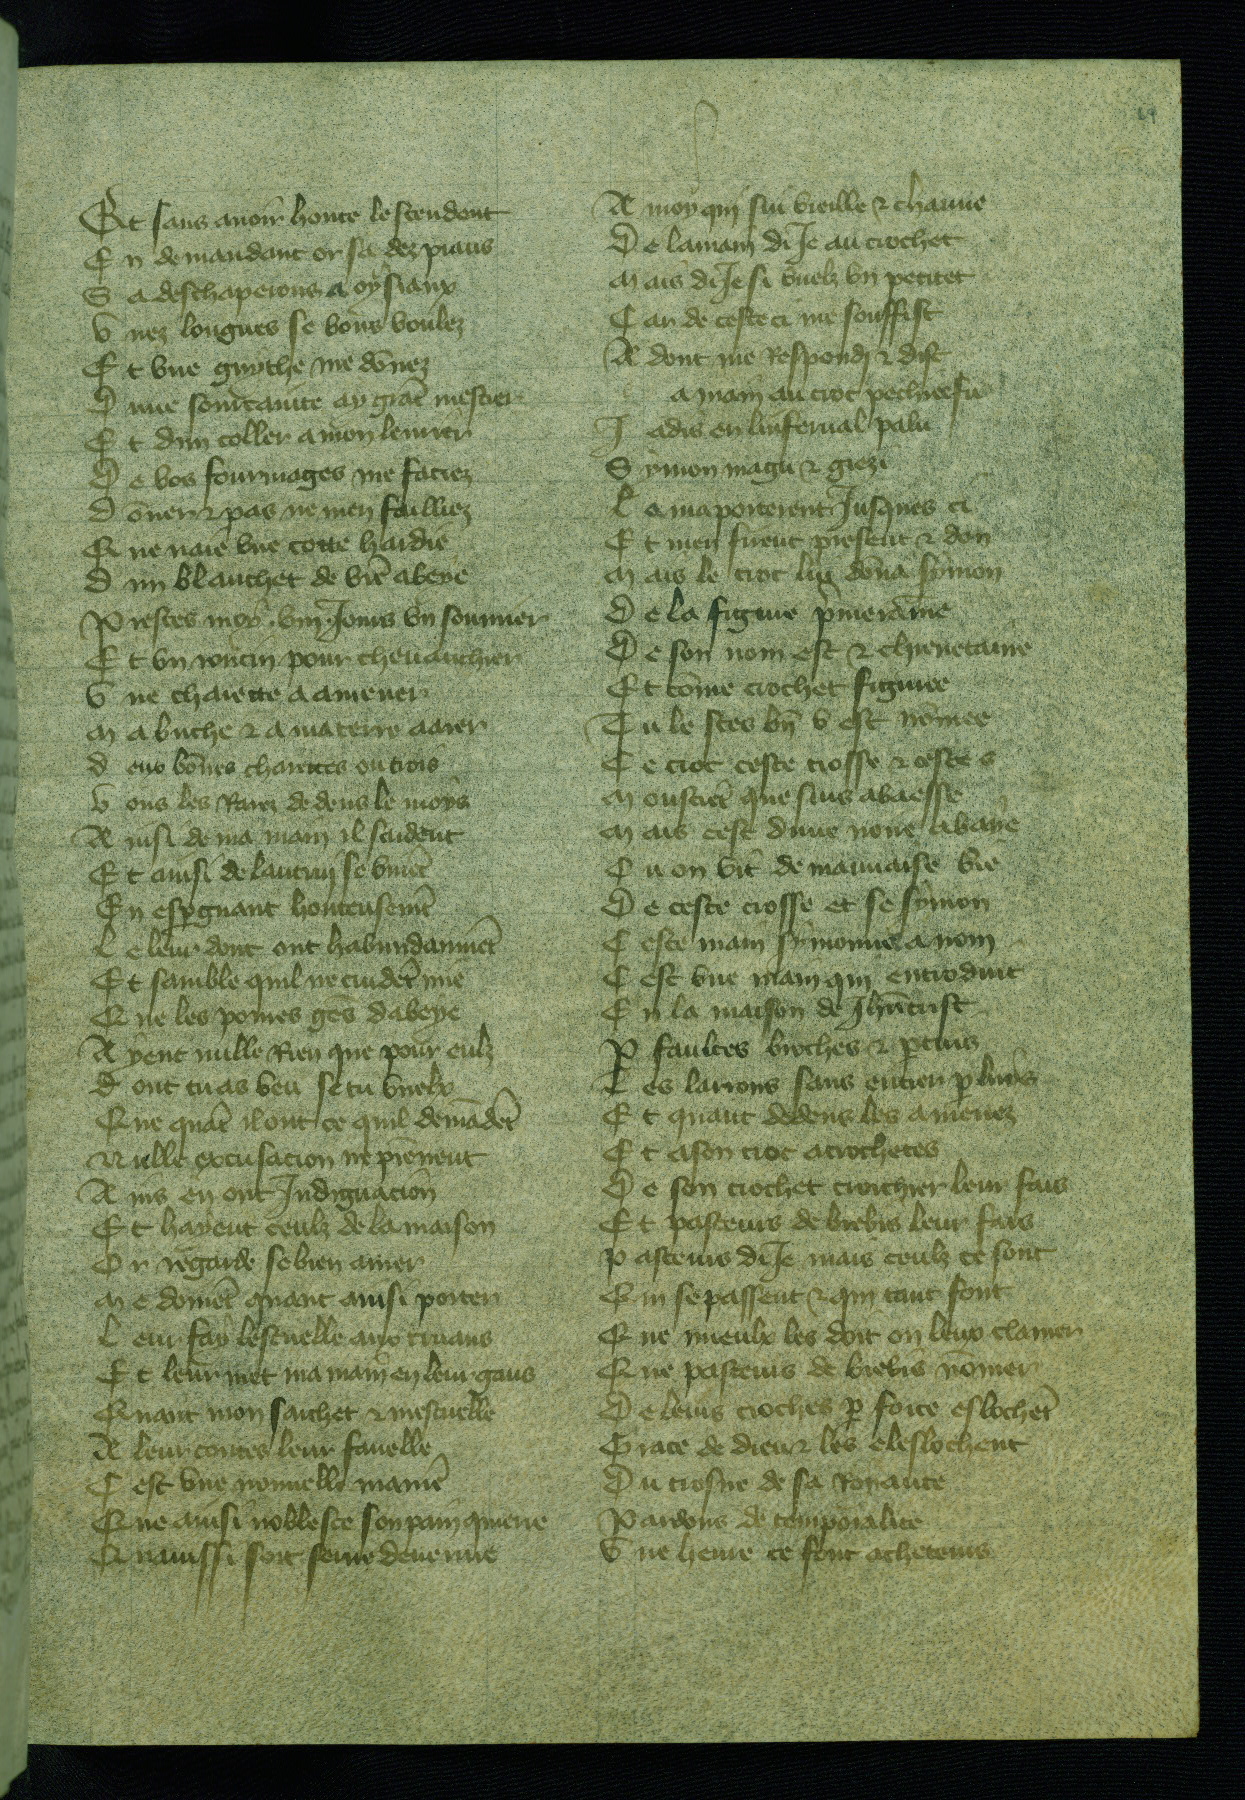 69
Et sans auoir honte le stendont
En demandant or sa dez piaus
Sa deschaperons a oysiaux
Vnez longues se vous voulez
Et vne gnythe me dōnez
Dune somcainte ay grāt mestier
Et dun coller a mon leurier
De vos fourmages me faciez
Dōner & pas ne men failliez
Que naie vne cotte hardie
Dun blanchet de vrē abeye
Prestes moy .viii. Jours vn sommier
Et vn roncin pour cheuauchier
Vne charette a amener
Ma buche & a ma terre aarer
deux bōnes charrettes ou trois
Vous les Rarez dedens le moys
Ainsi de ma main il saident
Et ainsi de lautruy se viuēt
En espgnant honteusemēt
Le leur dont ont habundanmēt
Et samble quil ne cuidēt mie
Que les poures gēs dabeye
Ayent nulle Rien que pour eulz
Dont tu as veu se tu vuelx
Que quāt il ont ce quil demādēt
Nulle excusacion ne prēnent
Ains en ont Indignacion
Et hayent ceulz de la maison
Or regarde se bien amer
Me doiuēt quant ainsi porter
Leur fay lescuelle aux truans
Et leur met ma main en leur gans
Quant mon saichet & mescuelle
A leur contes leur fauelle
Cest vne nouuelle maniē
Que ainsi noblesce son pain quiere
Qui aussi soit serue deuenue
A moy qui sui vieille & chanue
De la main di Je au crochet
Mais di Je si vuelz vn petitet
Car de ceste ci me souffist
A dont me Respondi & dist
a main au croc pechieresse
Jadis en linfernal palu
Symon magu & giezi
La maporterent Jusques ci
Et men firent present & don
Mais le croc luy dōna symon
De la figure pmeraine
De son nom est & chieuetaine
Et cōme crochet figuree
Tu le sces bn̄ v est nōmee
Ce croc ceste crosse & ceste s
Monstrēt que suis abaesse
Mais cest dune noire abaye
Ou on vit de mauuaise vie
De ceste crosse et se symon
Ceste main symonnie a nom
Cest vne main qui entroduit
En la maison de Jhūcrist
P faultes broches & ptuis
Les larrons sans entrer p luis
Et quant dedens les a menez
Et a son croc acrochetes
De son crochet crochier leur fais
Et pasteurs de brebis leur fais
Pasteurs di Je mais ceulz ce sont
Qui se passent & qui tant font
Que mieulx les doit on leux clamer
Que pasteurs de brebis nōmer
De leurs croches p force eslochēt
Grace de dieu & les eleslochent
Du trosne de sa Royaute
Pardons de temporalite
Vne heure ce sont acheteurs